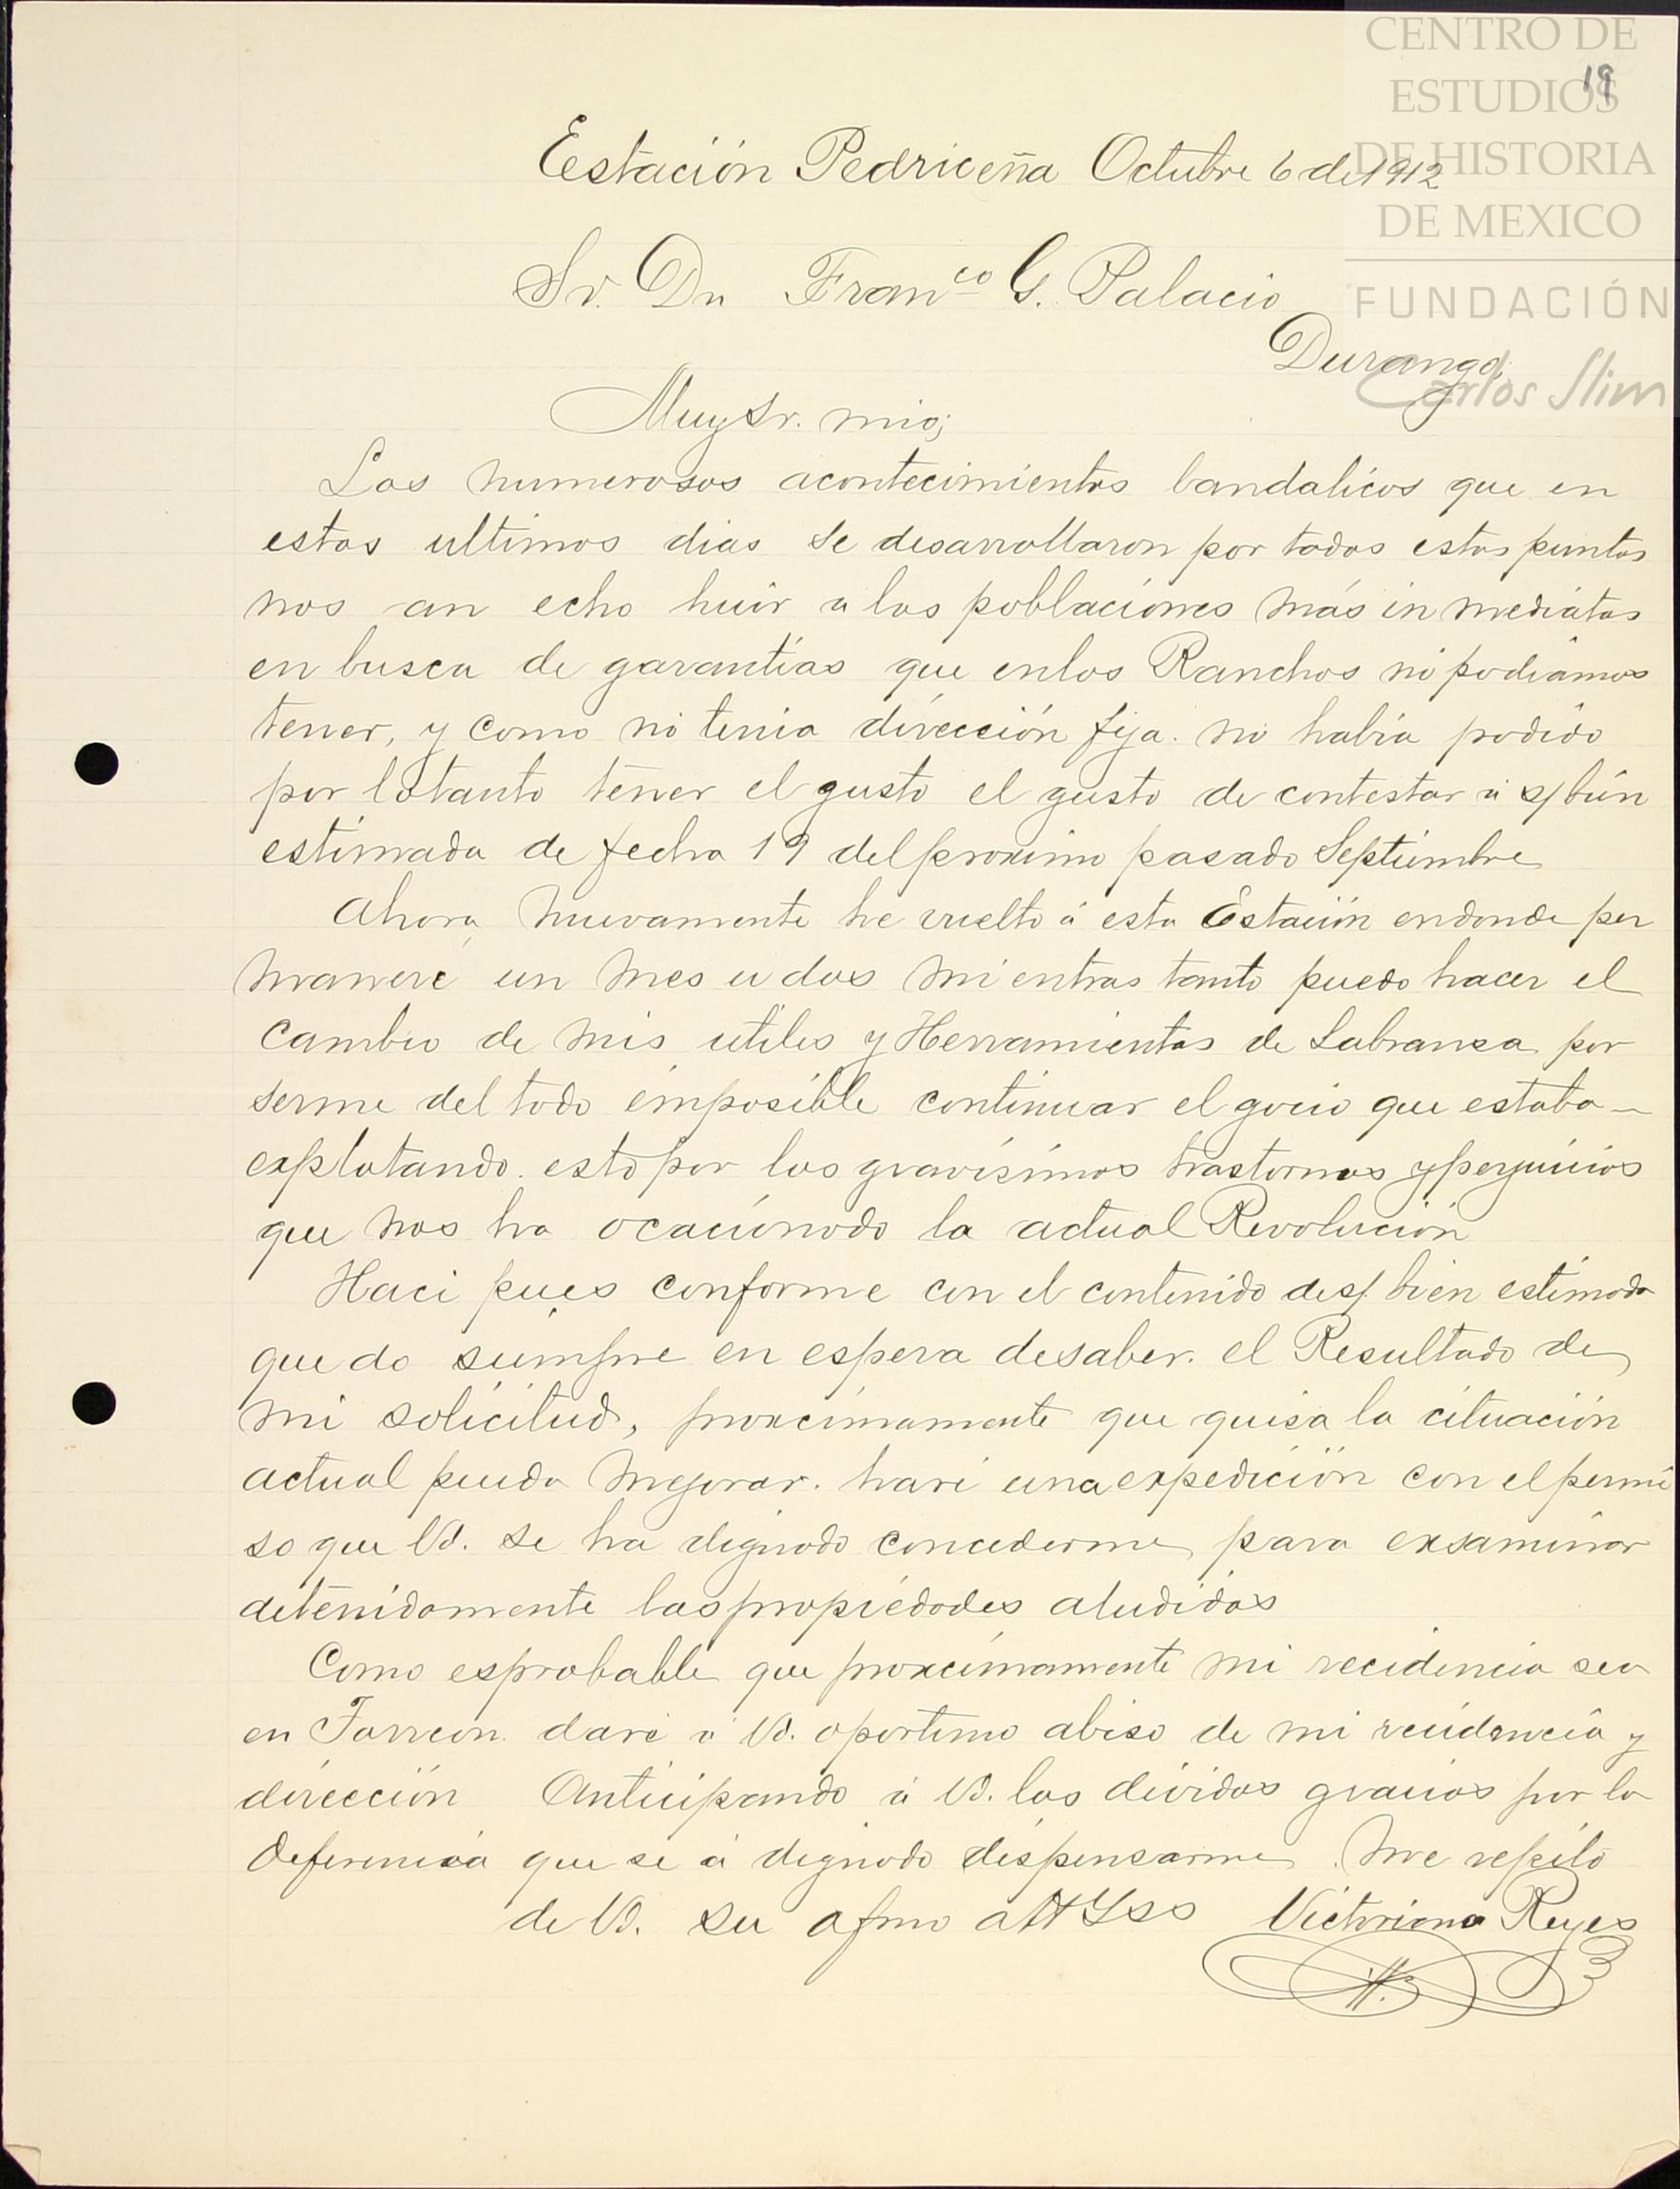 CENTRO DE
ESTUDIOS
DE HISTORIA
DE MEXICO
FUNDACIÓN
Carlos Slim
19
Estación Pedriceña Octubre 6 de 1912
Sr. Dn Franco G. Palacio
Durango,
Muy Sr. mio;
Los numerosos acontecimientos bandalicos que en
estos ultimos dias se desarrollaron por todos estos puntos
nos an echo huir a las poblaciones más in mediatas
en busca de garantias que enlos Ranchos no podiamos
tener, y como no tenia dirección fija. no habia podido
por lotanto tener el gusto el gusto de contestar á s/ bien
estimada de fecha 19 del proximo pasado Septiembre
Ahora, nuevamente he vuelto á esta Estación endonde per
maneré un mes u dos mientras tanto puedo hacer el
cambio de mis utiles y Herramientas de Labransa por
serme del todo imposible continuar el gocio que estaba
explotando. esto por los gravisimos trastornos y perjuicios
que nos ha ocacionado la actual Revolución
Haci pues conforme con el contenido des/ bien estimada
quedo siempre en espera desaber. el Resultado de
mi solicitud, proxcimamente que quisa la cituación
actual pueda mejorar. haré una expedición con el permi
so que Vd. se ha dignado concederme para exsaminar
detenidamente las propiedades aludidas
Como esprobable que proxcimamente mi recidencia sea
en Torreon. daré á Vd. oportuno abiso de mi recidencia y
dirección Anticipando á Vd. las dividas gracias por la
deferencia que se á dignado dispensarme. Me repito
de Vd. su afmo att Sss Victoriano Reyes